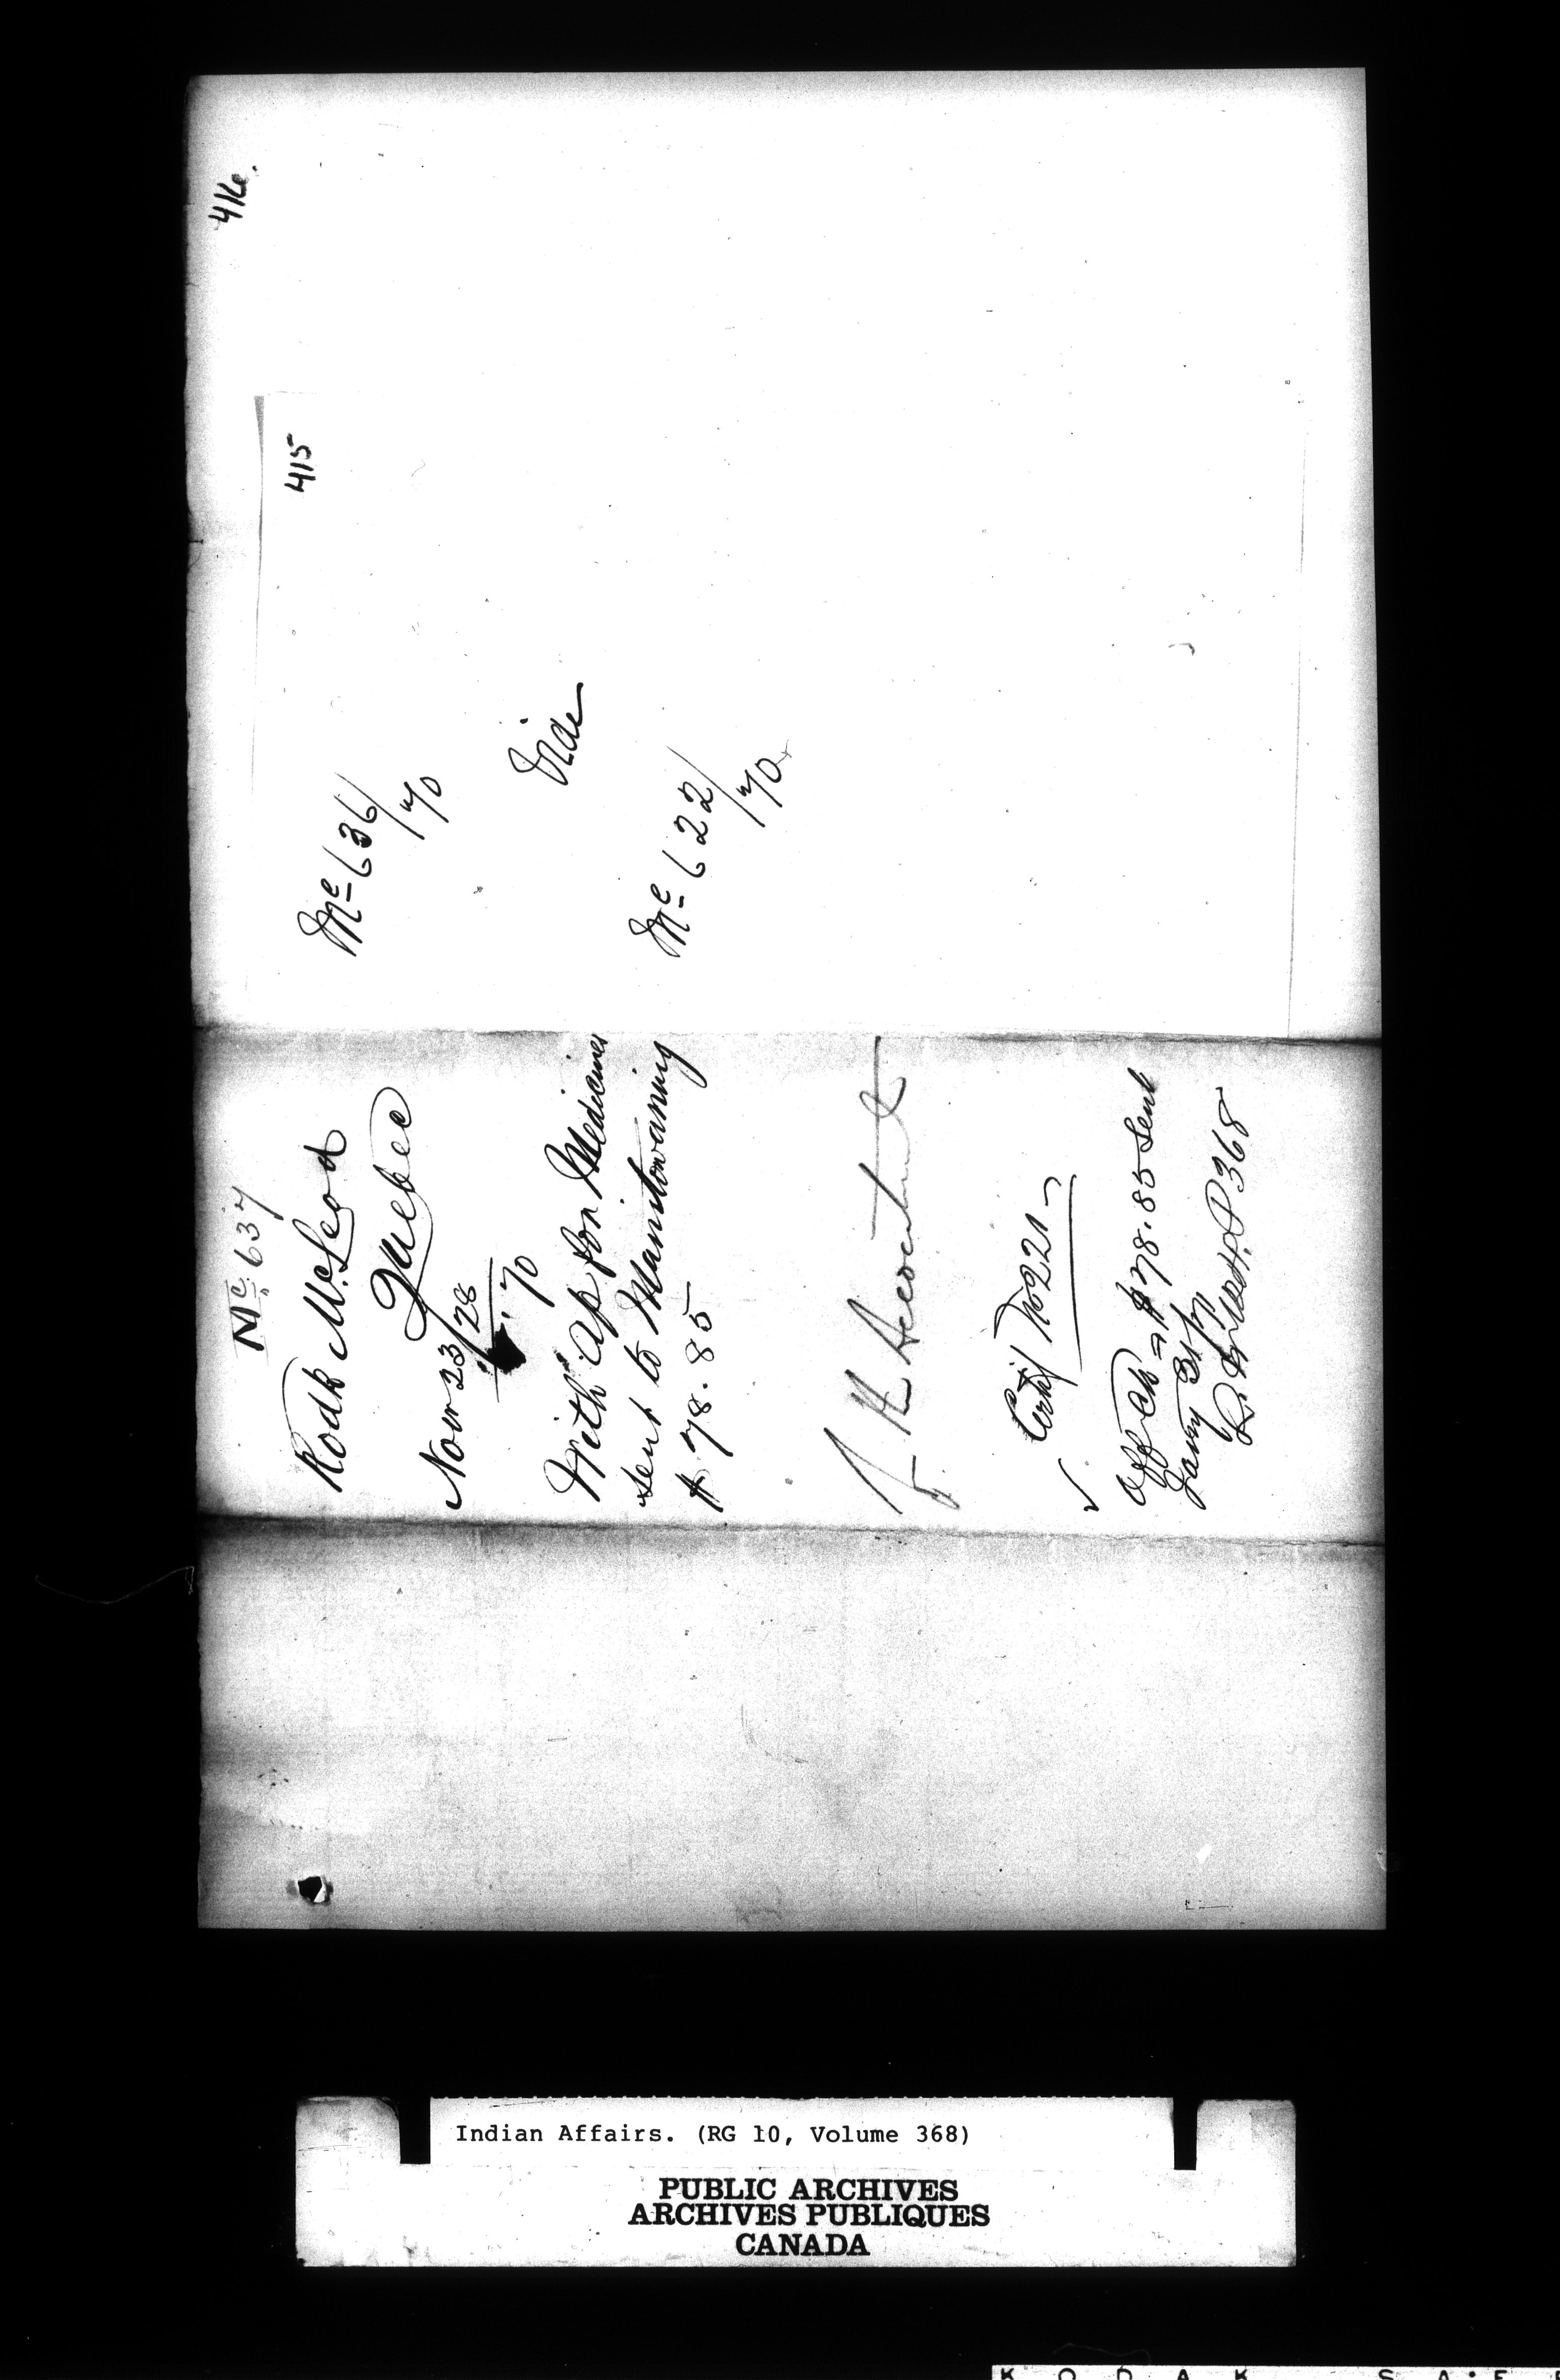 416.
415
Mc 636/70
Mc 622/70
Mc. 637
Rodk McLeod
Quebec
Novr 23/28
70
With a/c for Medicines
sent to Manitowaning
$78.85
Accountant
Certif No 221
✓
Off Ch $78.85 sent
Jany 31st
P 368
Indian Affairs. (RG 10, Volume 368)
PUBLIC ARCHIVES
ARCHIVES PUBLIQUES
CANADA
K O D A K S A · F